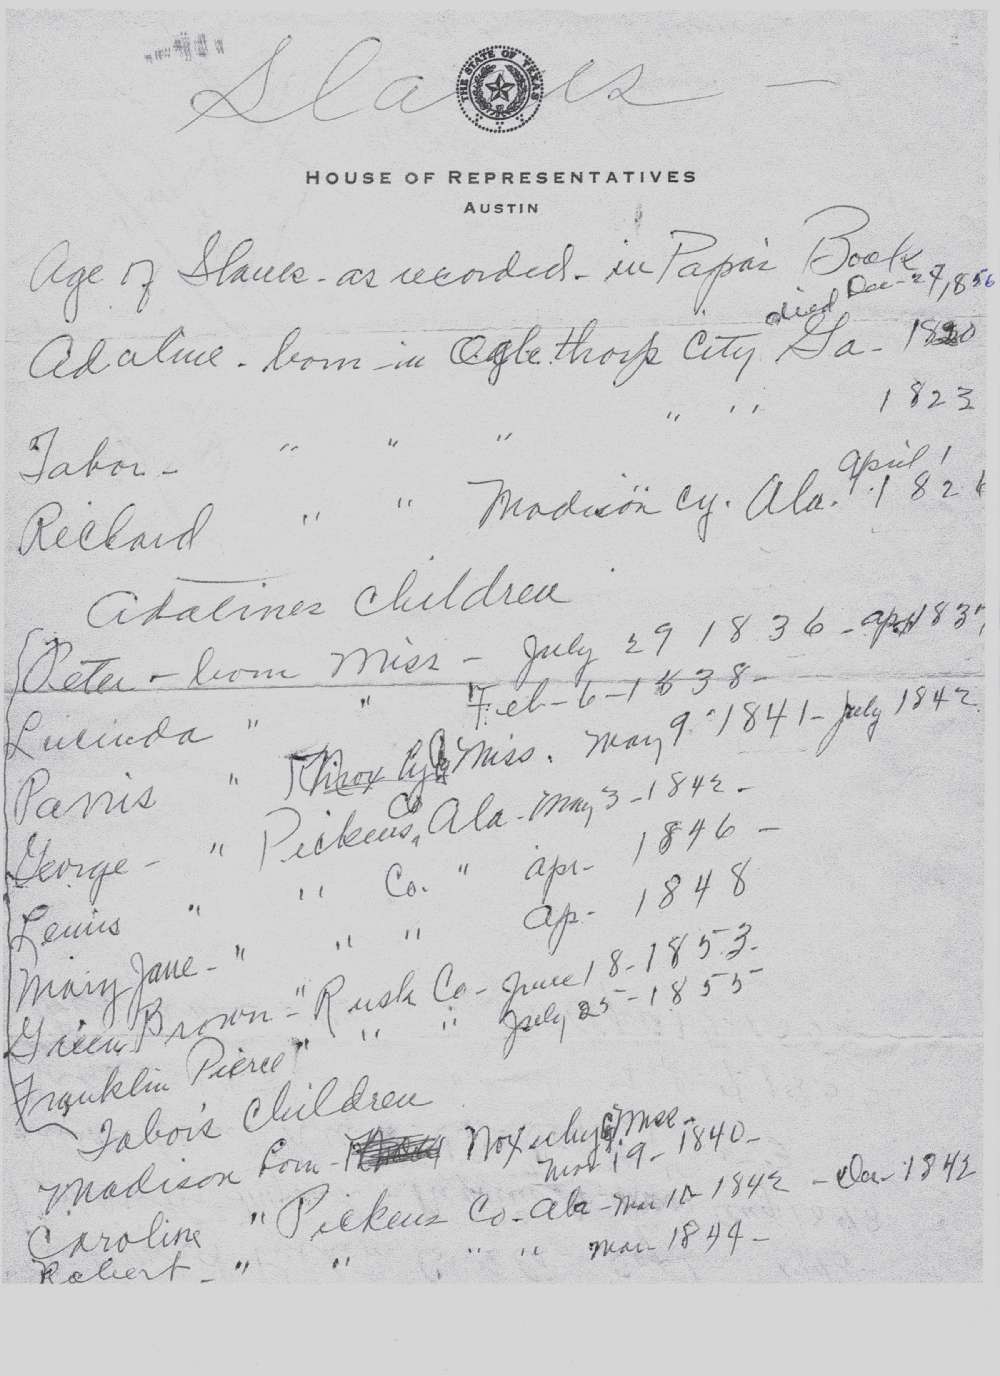 Slaves -
THE STATE OF TEXAS
HOUSE OF REPRESENTATIVES
AUSTIN
Age of Slaves - as recorded - in Papa's Book
died Dec - 24, 1856
Adaline - born in Oglethorp City Ga - 1820
Tabor - " " " " " 1823
Richard " " Madison cy. Ala. April 1 182
Adalines Children
Peter - born Miss - July 29 1836 - 1837
Lucinda " " Feb - 6 - 1838 -
Parris " Miss. May 9 - 1841 - July 1842
George - " Pickens Co, Ala - May 3 - 1842 -
Lewis " " Co. " Apr - 1846 -
Mary Jane - " " " Ap - 1848
Green Brown - " Rusk Co - June 18 - 1853 -
Franklin Pierce " " " July 25 - 1855
Tabor's Children
Madison born - Noxuby Cy Miss -
Mar 19 - 1840 -
Caroline " Pickens Co - Ala - Mar 1842 - 1842
Robert - " " " " Mar - 1844 -